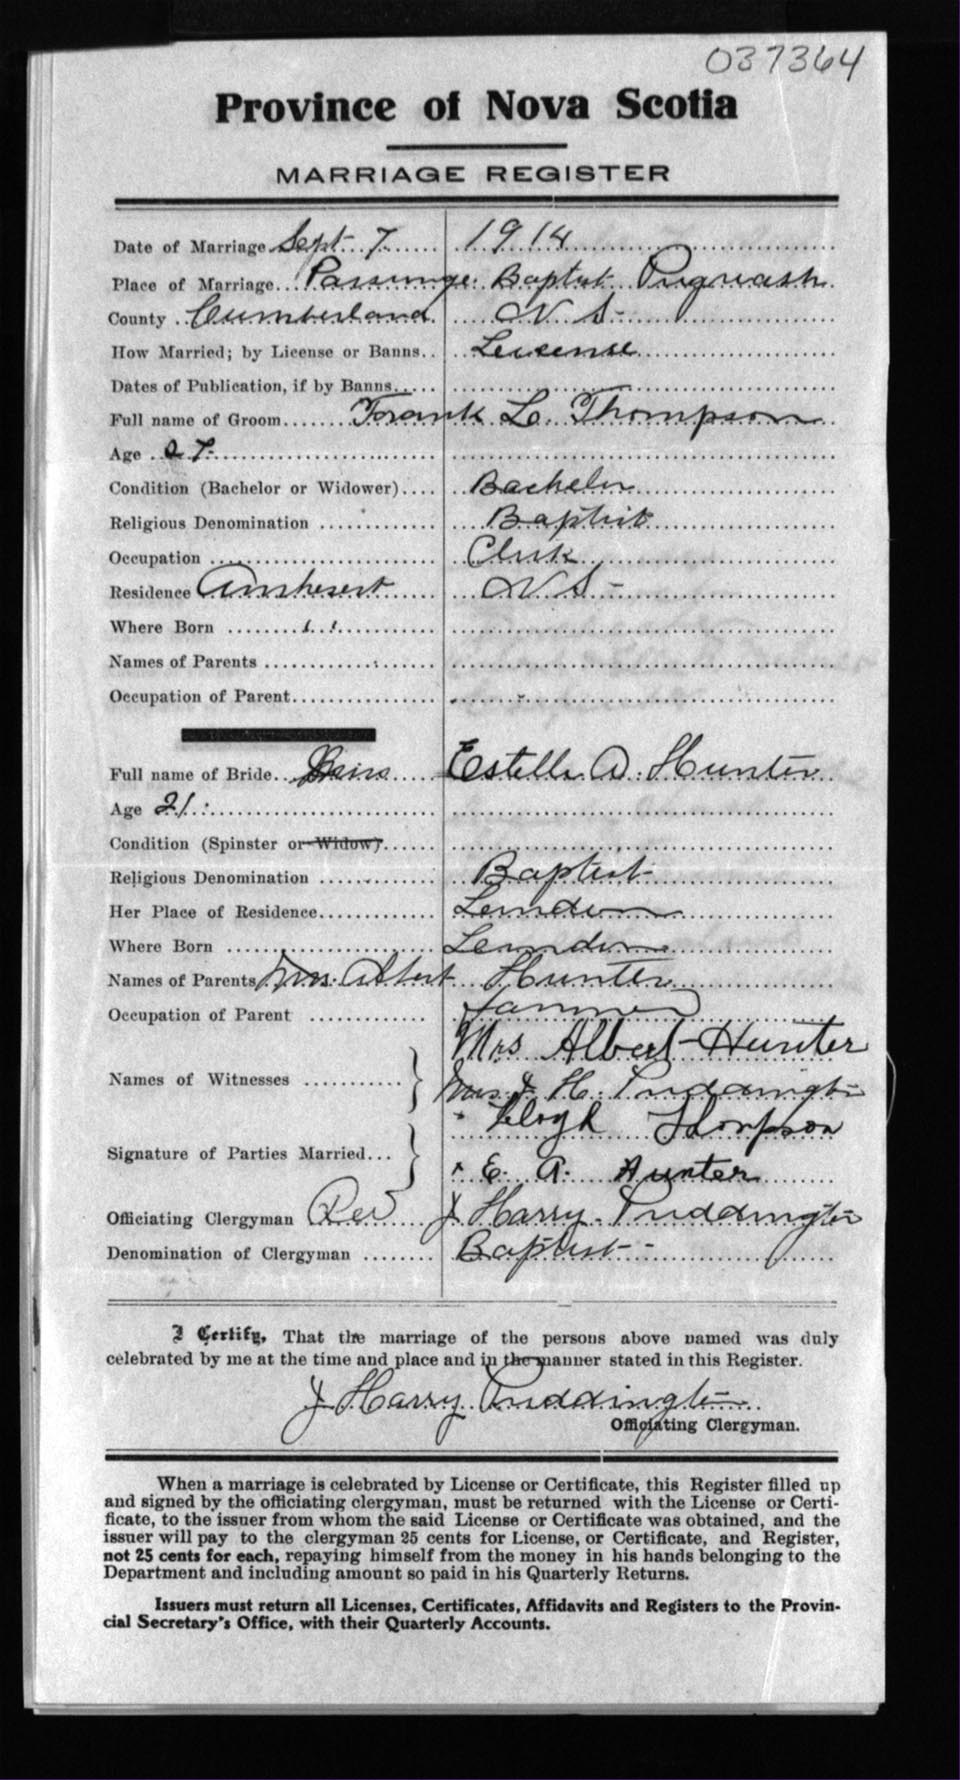 037364
Province of Nova Scotia
MARRIAGE REGISTER
Date of Marriage Sept 7 1914
Place of Marriage... Parsonage Baptist Pugwash
County .. Cumberland N S-
How Married; by License or Banns.. License
Dates of Publication, if by Banns.....
Full name of Groom....... Frank L. Thompson
Age .. 27
Condition (Bachelor or Widower).... Bachelor
Religious Denomination ............ Baptist
Occupation .. Clerk
Residence Amherst N S-
Where Born ........ " "
Names of Parents ..................
Occupation of Parent...............
Full name of Bride.. Miss Estella A. Hunter
Age 21
Condition (Spinster or Widow)......
Religious Denomination ............ Baptist
Her Place of Residence............. Linden
Where Born ........................ Linden
Names of Parents Mrs. Albert Hunter
Occupation of Parent ............ farmer
Mrs Albert Hunter
Names of Witnesses ...........
Mrs J H. Puddington
Thompson
Signature of Parties Married...
x E. A. Hunter
Officiating Clergyman Rev J Harry Puddington
Denomination of Clergyman ........ Baptist-
I Certify, That the marriage of the persons above named was duly
celebrated by me at the time and place and in the manner stated in this Register.
J Harry Puddington
Officiating Clergyman.
When a marriage is celebrated by License or Certificate, this Register filled up
and signed by the officiating clergyman, must be returned with the License or Certi-
ficate, to the issuer from whom the said License or Certificate was obtained, and the
issuer will pay to the clergyman 25 cents for License, or Certificate, and Register,
not 25 cents for each, repaying himself from the money in his hands belonging to the
Department and including amount so paid in his Quarterly Returns.
Issuers must return all Licenses, Certificates, Affidavits and Registers to the Provin-
cial Secretary's Office, with their Quarterly Accounts.